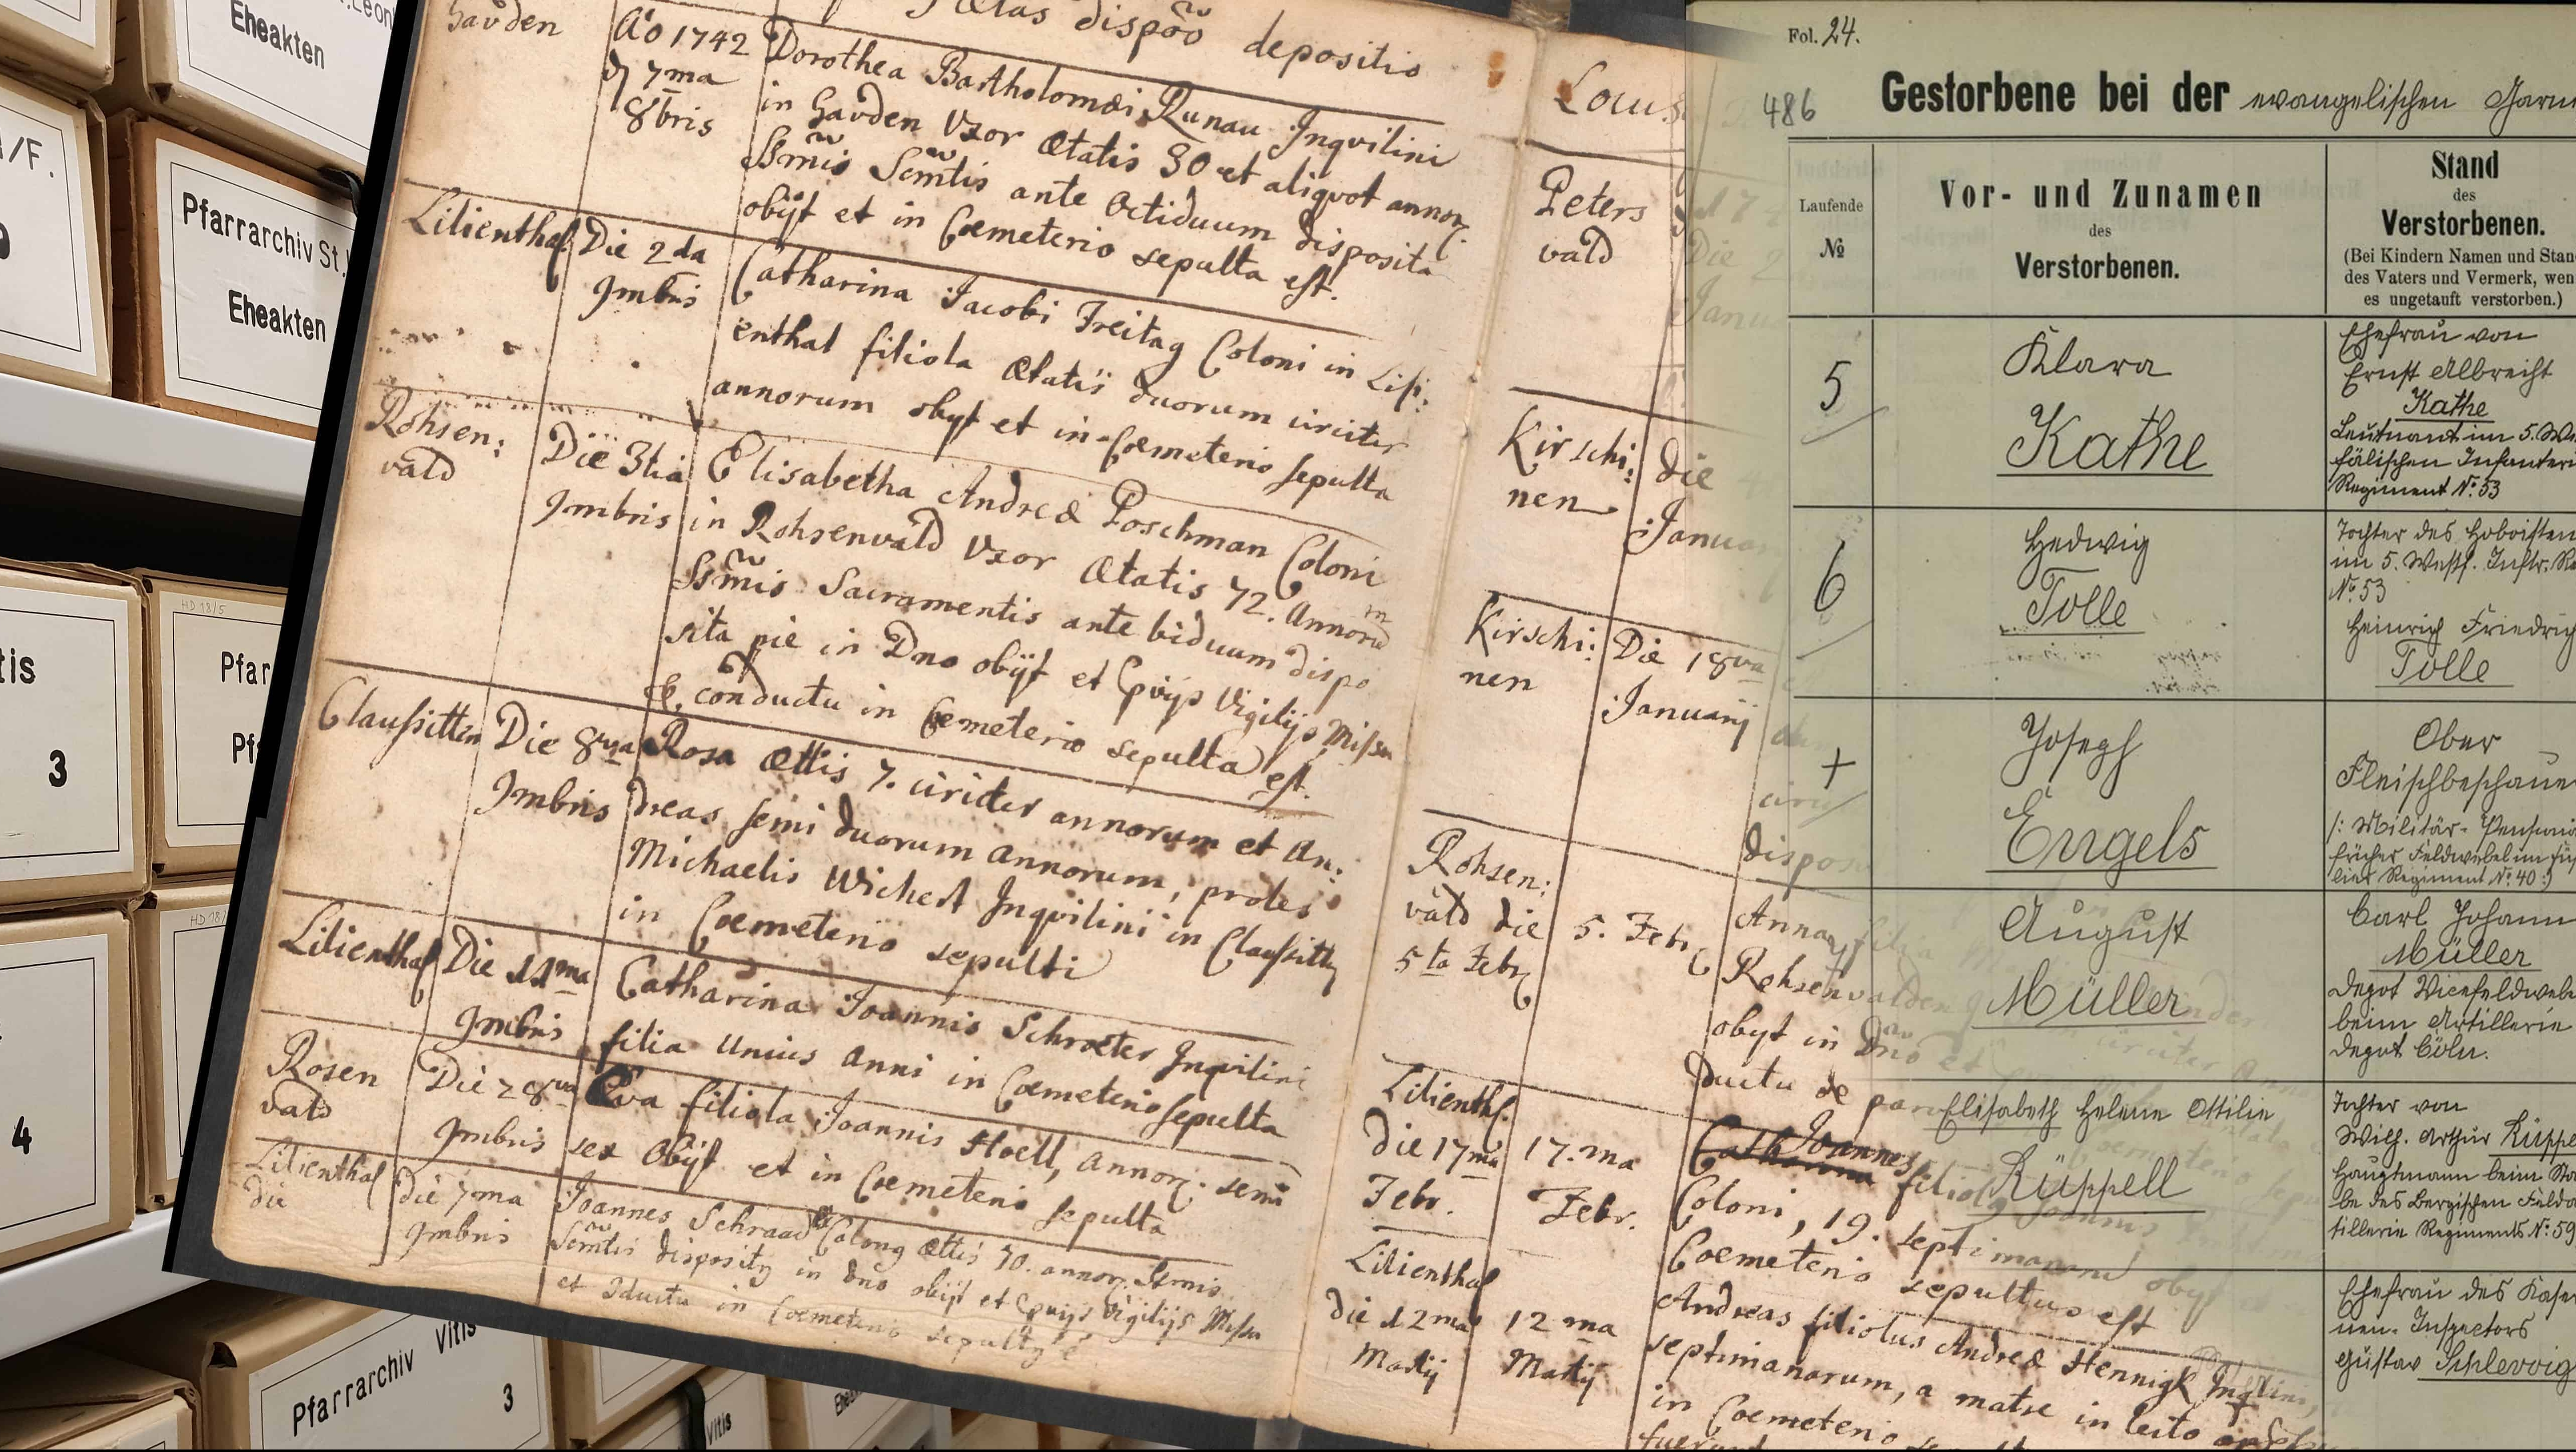 Leon
Eheakten
A/F.
Pfarrarchiv St.
Eheakten
HD 18/5
tis
3
Pfar
Pf
HD 18/
4
Pfarrarchiv Vitis
3
Vitis
Ætas dispoō depositio
Gauden
Aō 1742
d 7ma
8bris
Dorothea Bartholomæi Runau Inqvilini
in Gauden Vxor Ætatis 30 et aliqvot annor.
SSmis Semtis ante Octiduum disposita
obijt et in Coemeterio sepulta est.
Lilienthal
Die 2da
9mbris
Catharina Jacobi Freitag Coloni in Lili:
enthal filiola Ætatis duorum circiter
annorum obyt et in Coemeterio sepulta
Rohsen:
vald
Die 3tia
9mbris
Elisabetha Andreæ Poschman Coloni
in Rohsenvald Vxor Ætatis 72. Annorū
SSmis Sacramentis ante biduum dispo
sita pie in Dno obijt et Vigilijs Missa
& conductu in Coemeterio sepulta est.
Claussitten
Die 8va
9mbris
Rosa Ættis 7. circiter annorum et An:
dreas semi duorum annorum, proles
Michaelis Wichert Inqvilini in Claussitt
in Coemeterio sepulti
Lilienthal
Die 11ma
9mbris
Catharina Joannis Schroeter Inqvilini
filia unius anni in Coemeterio sepulta
Rosen
vald
Die 28va
9mbris
Eva filiola Joannis Hoell, annor. semi
sex Obijt et in Coemeterio sepulta
Lilienthal
die
die 7ma
9mbris
Joannes Schraad Ættis 70. annor.
Semtis in Dno obijt et Vigilijs Missa
et in Coemeterio
Locus
Peters
vald
Kirschi:
nen
die
Januar
Kirschi:
nen
Die 18va
Januarij
dispos
Rohsen:
vald die
5ta Febr
5. Febr
Anna filia
Rohsenvalden
obyt in Dno et
ductu de
Lilienth.
die 17ma
Febr.
17.ma
Febr.
Joannes
Catharina filiola Joannis
Coloni, 19. septimanarū obyt
Coemeterio sepultus est
Lilienthal
die 12ma
Martij
12ma
Martij
Andreas filiolus Andreæ Hennigk Inqvlini,
septimanarum, a matre in lecto
in Coemeterio
Fol. 24.
486
Gestorbene bei der evangelischen Garni
Laufende
No
Vor- und Zunamen
des
Verstorbenen.
Stand
des
Verstorbenen.
(Bei Kindern Namen und Stan
des Vaters und Vermerk, wen
es ungetauft verstorben.)
5
Klara
Kathe
Ehefrau von
Ernst Albrecht
Kathe
Leutnant im 5. We
fälischen Infanteri
Regiment No. 53
6
Hedwig
Tolle
Tochter des Hoboisten
im 5. Westf. Inftr. Re
No. 53
Heinrich Friedrich
Tolle
+
Joseph
Engels
Ober
Fleischbeschaue
/: Militär-Pensionä
früher Feldwebel im Füsi
lier Regiment No. 40 :/
August
Müller
Carl Johann
Müller
Depot Vicefeldwebe
beim Artillerie
Depot Cöln.
Elisabeth Helene Ottilie
Rüppell
Tochter von
Wilh. Arthur Rüppe
Hauptmann beim Sta
be des Bergischen Felda
tillerie Regiments No. 59
Ehefrau des Kaser
nen-Inspectors
Gustav Schlevoig